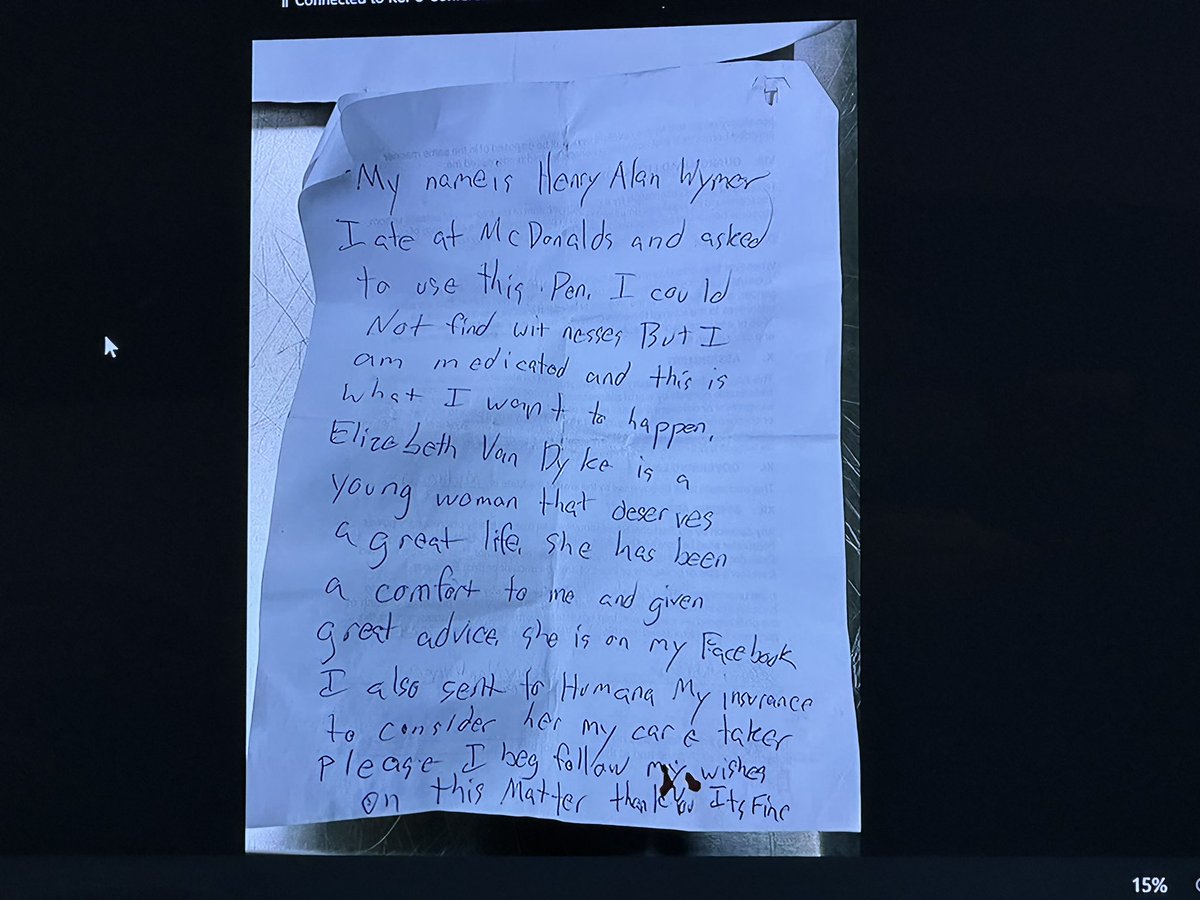 My name is Henry Alan Wymer
I ate at McDonalds and asked
to use this Pen. I could
Not find witnesses But I
am medicated and this is
what I want to happen.
Elizabeth Van Dyke is a
young woman that deserves
a great life. she has been
a comfort to me and given
great advice. she is on my Facebook
I also sent to Humana My insurance
to consider her my care taker
please I beg follow my wishes
on this Matter thank You Its Fine
15%